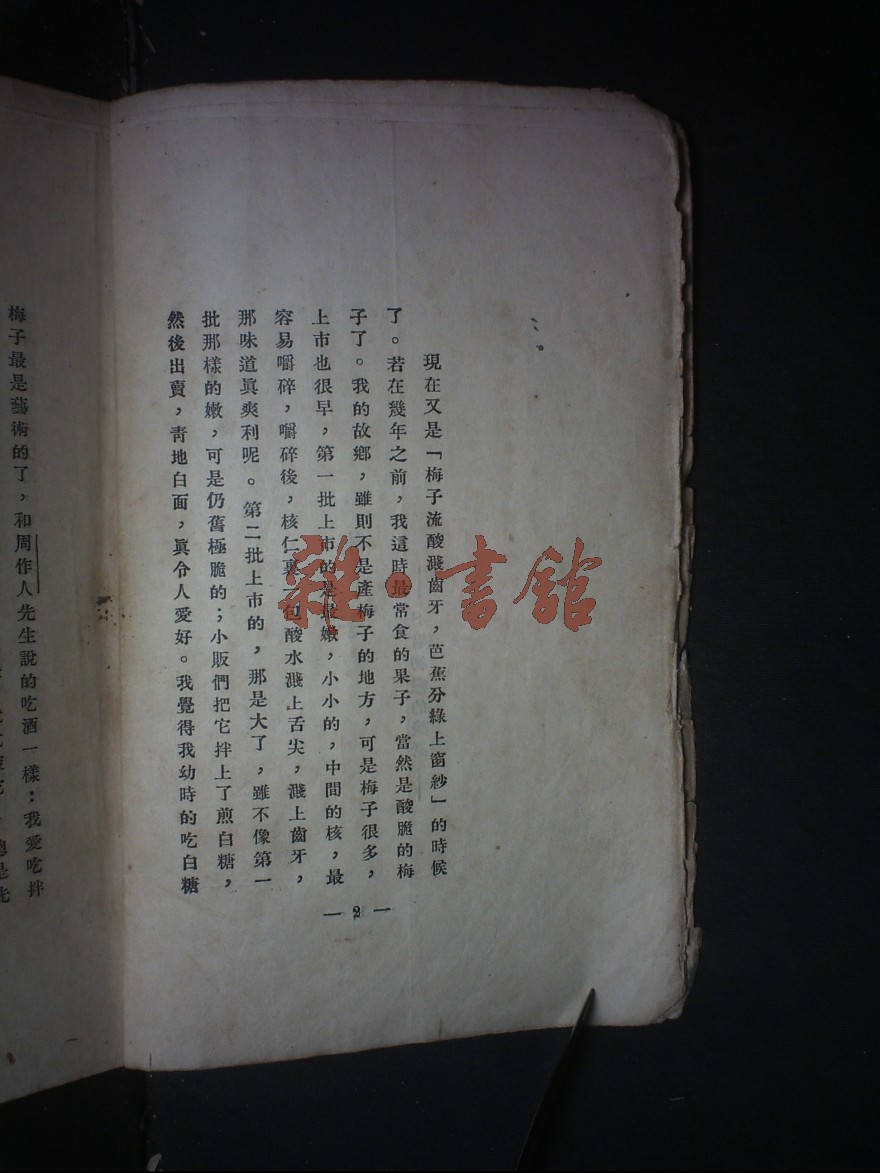 現在又是「梅子流酸濺齒牙，芭蕉分綠上窗紗」的時候
了。若在幾年之前，我這時最常食的果子，當然是酸脆的梅
子了。我的故鄉，雖則不是產梅子的地方，可是梅子很多，
上市也很早，第一批上市的是最嫩，小小的，中間的核，最
容易嚼碎，嚼碎後，核仁裏一包酸水濺上舌尖，濺上齒牙，
那味道眞爽利呢。第二批上市的，那是大了，雖不像第一
批那樣的嫩，可是仍舊極脆的；小販們把它拌上了煎白糖，
然後出賣，靑地白面，眞令人愛好。我覺得我幼時的吃白糖
— 2 —
梅子最是藝術的了，和周作人先生說的吃酒一樣：我愛吃拌
雜·書館